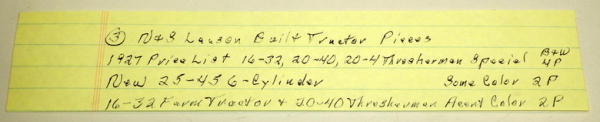 ③ N&S Lauson Built Tractor Pieces
1927 Price List 16-32, 20-40, 20-4 Thresherman Special B&W 4P
New 25-45 6-Cylinder Some Color 2P
16-32 Farm Tractor & 20-40 Thresherman Agent Color 2P